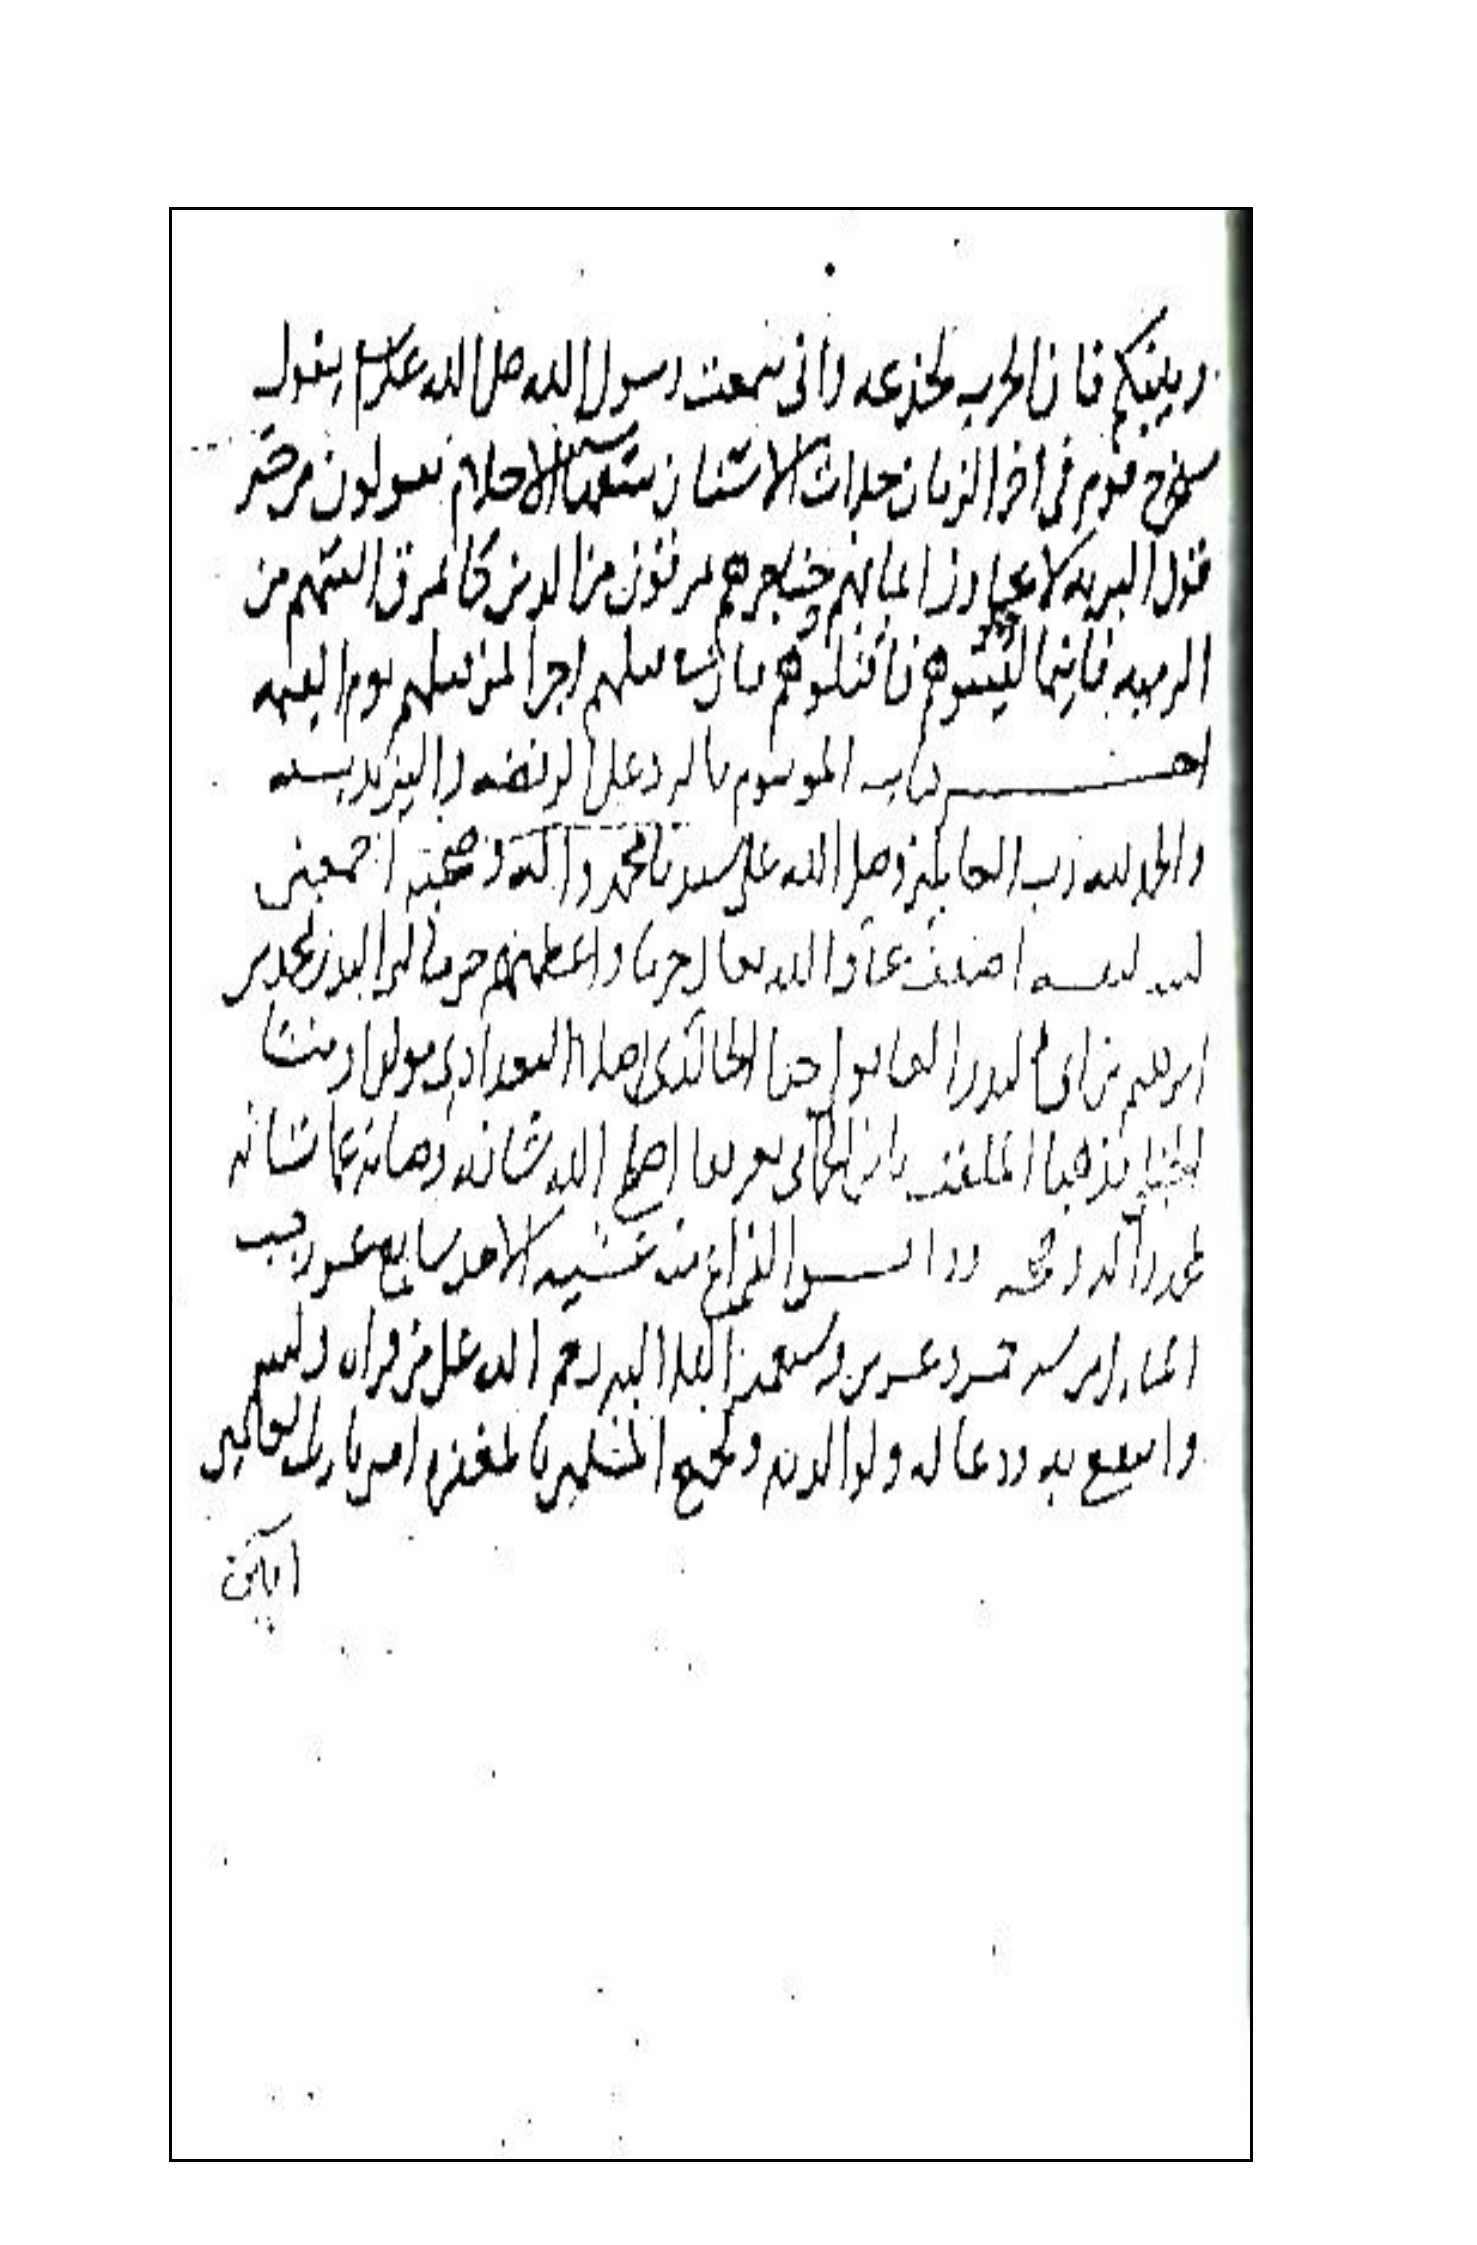 وبينكم فان الحرب خدعه واني سمعت رسول الله صلى الله عليه وسلم يقول
سيخرج قوم في اخر الزمان حداث الاسنان سفهاء الاحلام يقولون من خير
قول البريه لا يجاوز ايمانهم حناجرهم يمرقون من الدين كما يمرق السهم من
الرميه فاينما لقيتموهم فاقتلوهم فان في قتلهم اجرا لمن قتلهم يوم القيمه
اخر كتاب الموسوم بالرد على الرافضه واليزيديه
والحمد لله رب العالمين وصلى الله على سيدنا محمد واله وصحبه اجمعين
كتبه لنفسه اضعف عباد الله تعالى جرما واعظمهم جرما ابو البدر بن
ابرهيم بن ابي البدر الخالدي اصلا البغدادي مولدا ومنشا
الحنبلي مذهبا الملقب اصلح الله شانه وصانه عما شانه
بمحمد واله وصحبه ووافق الفراغ منه عشيه الاحد سابع عشر رجب
المبارك من سنه خمس وعشرين وسبعمايه رحم الله على من قراه
وانتفع به ودعا له ولوالديه ولجميع المسلمين بالمغفره امين يا رب العالمين
امين